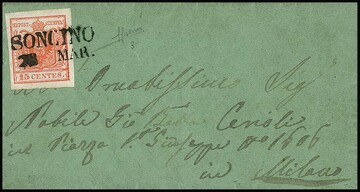 SONCINO
28 MAR.
15 CENTES.
Ornatissimo Sig
Nobile Gio
in Piazza S. Giuseppe No 1606
in Milano